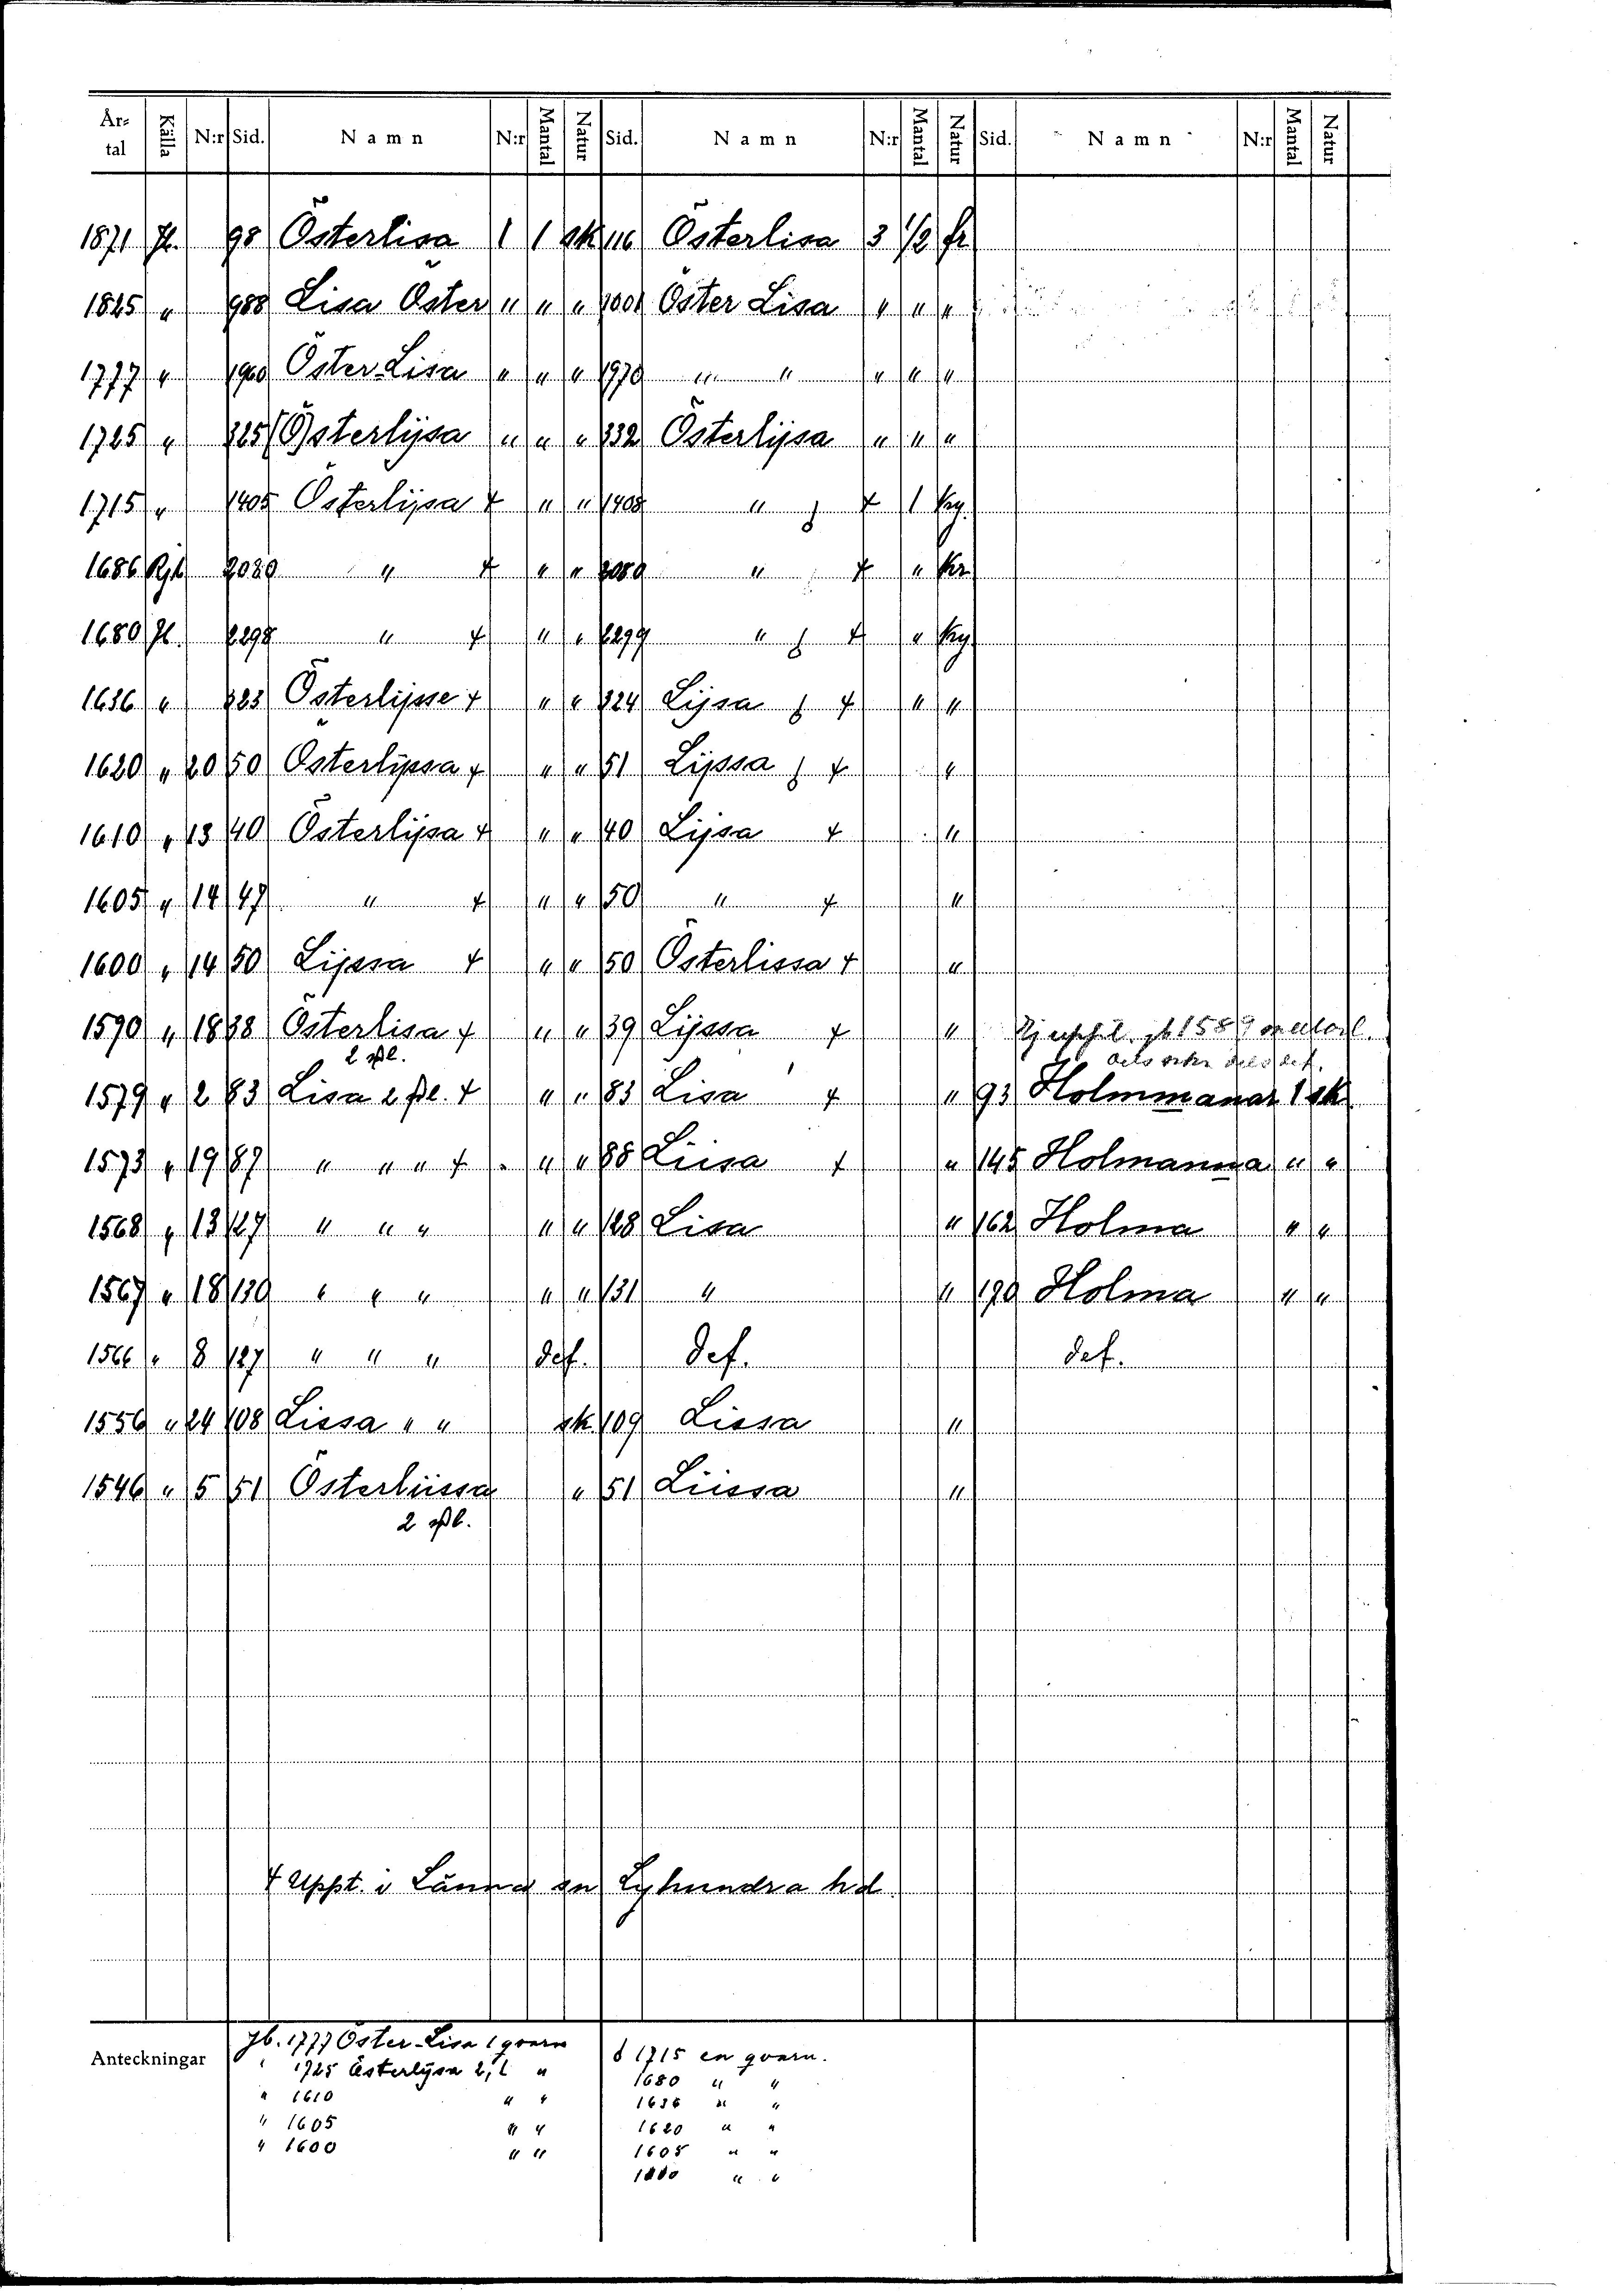 År-tal Källa N:r Sid. Namn N:r Mantal Natur Sid. Namn N:r Mantal Natur Sid. Namn N:r Mantal Natur
1871 Jb. 98 Österlisa 1 1 sk 116 Österlisa 3 1/2 fr
1825 " 988 Lisa Öster " " " 1001 Öster Lisa " " "
1777 " 1960 Öster-Lisa " " " 1970 " " " " "
1725 " 325 (Ö)sterlijsa " " " 332 Österlijsa " " "
1715 " 1405 Österlijsa + " " 1408 " + 1 kry.
1686 Rjb 2080 " + " " 2080 " + " kr
1680 Jb. 2298 " + " " 2299 " + " kry
1636 " 323 Österlijsse + " " 324 Lijsa + " "
1620 " 20 50 Österlijssa + " " 51 Lijssa + "
1610 " 13 40 Österlijsa + " " 40 Lijsa + "
1605 " 14 47 " + " " 50 " + "
1600 " 14 50 Lijssa + " " 50 Österlissa + "
1590 " 18 38 Österlisa + " " 39 Lijssa + " Ej jb 1589
2 pl. dels dels def.
1579 " 2 83 Lisa 2 pl. + " " 83 Lisa + " 93 Holmmanar 1 sk
1573 " 19 87 " " " + " " 88 Liisa + " 145 Holmanna " "
1568 " 13 127 " " " " " 128 Lisa " 162 Holma " "
1567 " 18 130 " " " " " 131 " " 190 Holma " "
1566 " 8 127 " " " def. def. def.
1556 " 24 108 Lissa " " sk 109 Lissa "
1546 " 5 51 Österliissa " 51 Liissa "
2 pl.
+ Uppt. i Länna sn Lyhundra hd.
Anteckningar
Jb. 1777 Öster-Lisa 1 qvarn
" 1725 Österlijsa 2, 1 "
" 1610 " "
" 1605 " "
" 1600 " "
1715 en qvarn.
1680 " "
1636 " "
1620 " "
1605 " "
1600 " "